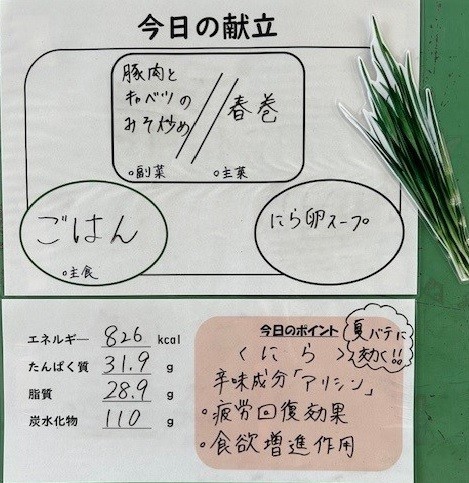 今日の献立
豚肉と
キャベツの
みそ炒め
春巻
○副菜
○主菜
ごはん
○主食
にら卵スープ
エネルギー 826 kcal
たんぱく質 31.9 g
脂質 28.9 g
炭水化物 110 g
今日のポイント
夏バテに
効く!!
〈にら〉
辛味成分「アリシン」
○疲労回復効果
○食欲増進作用